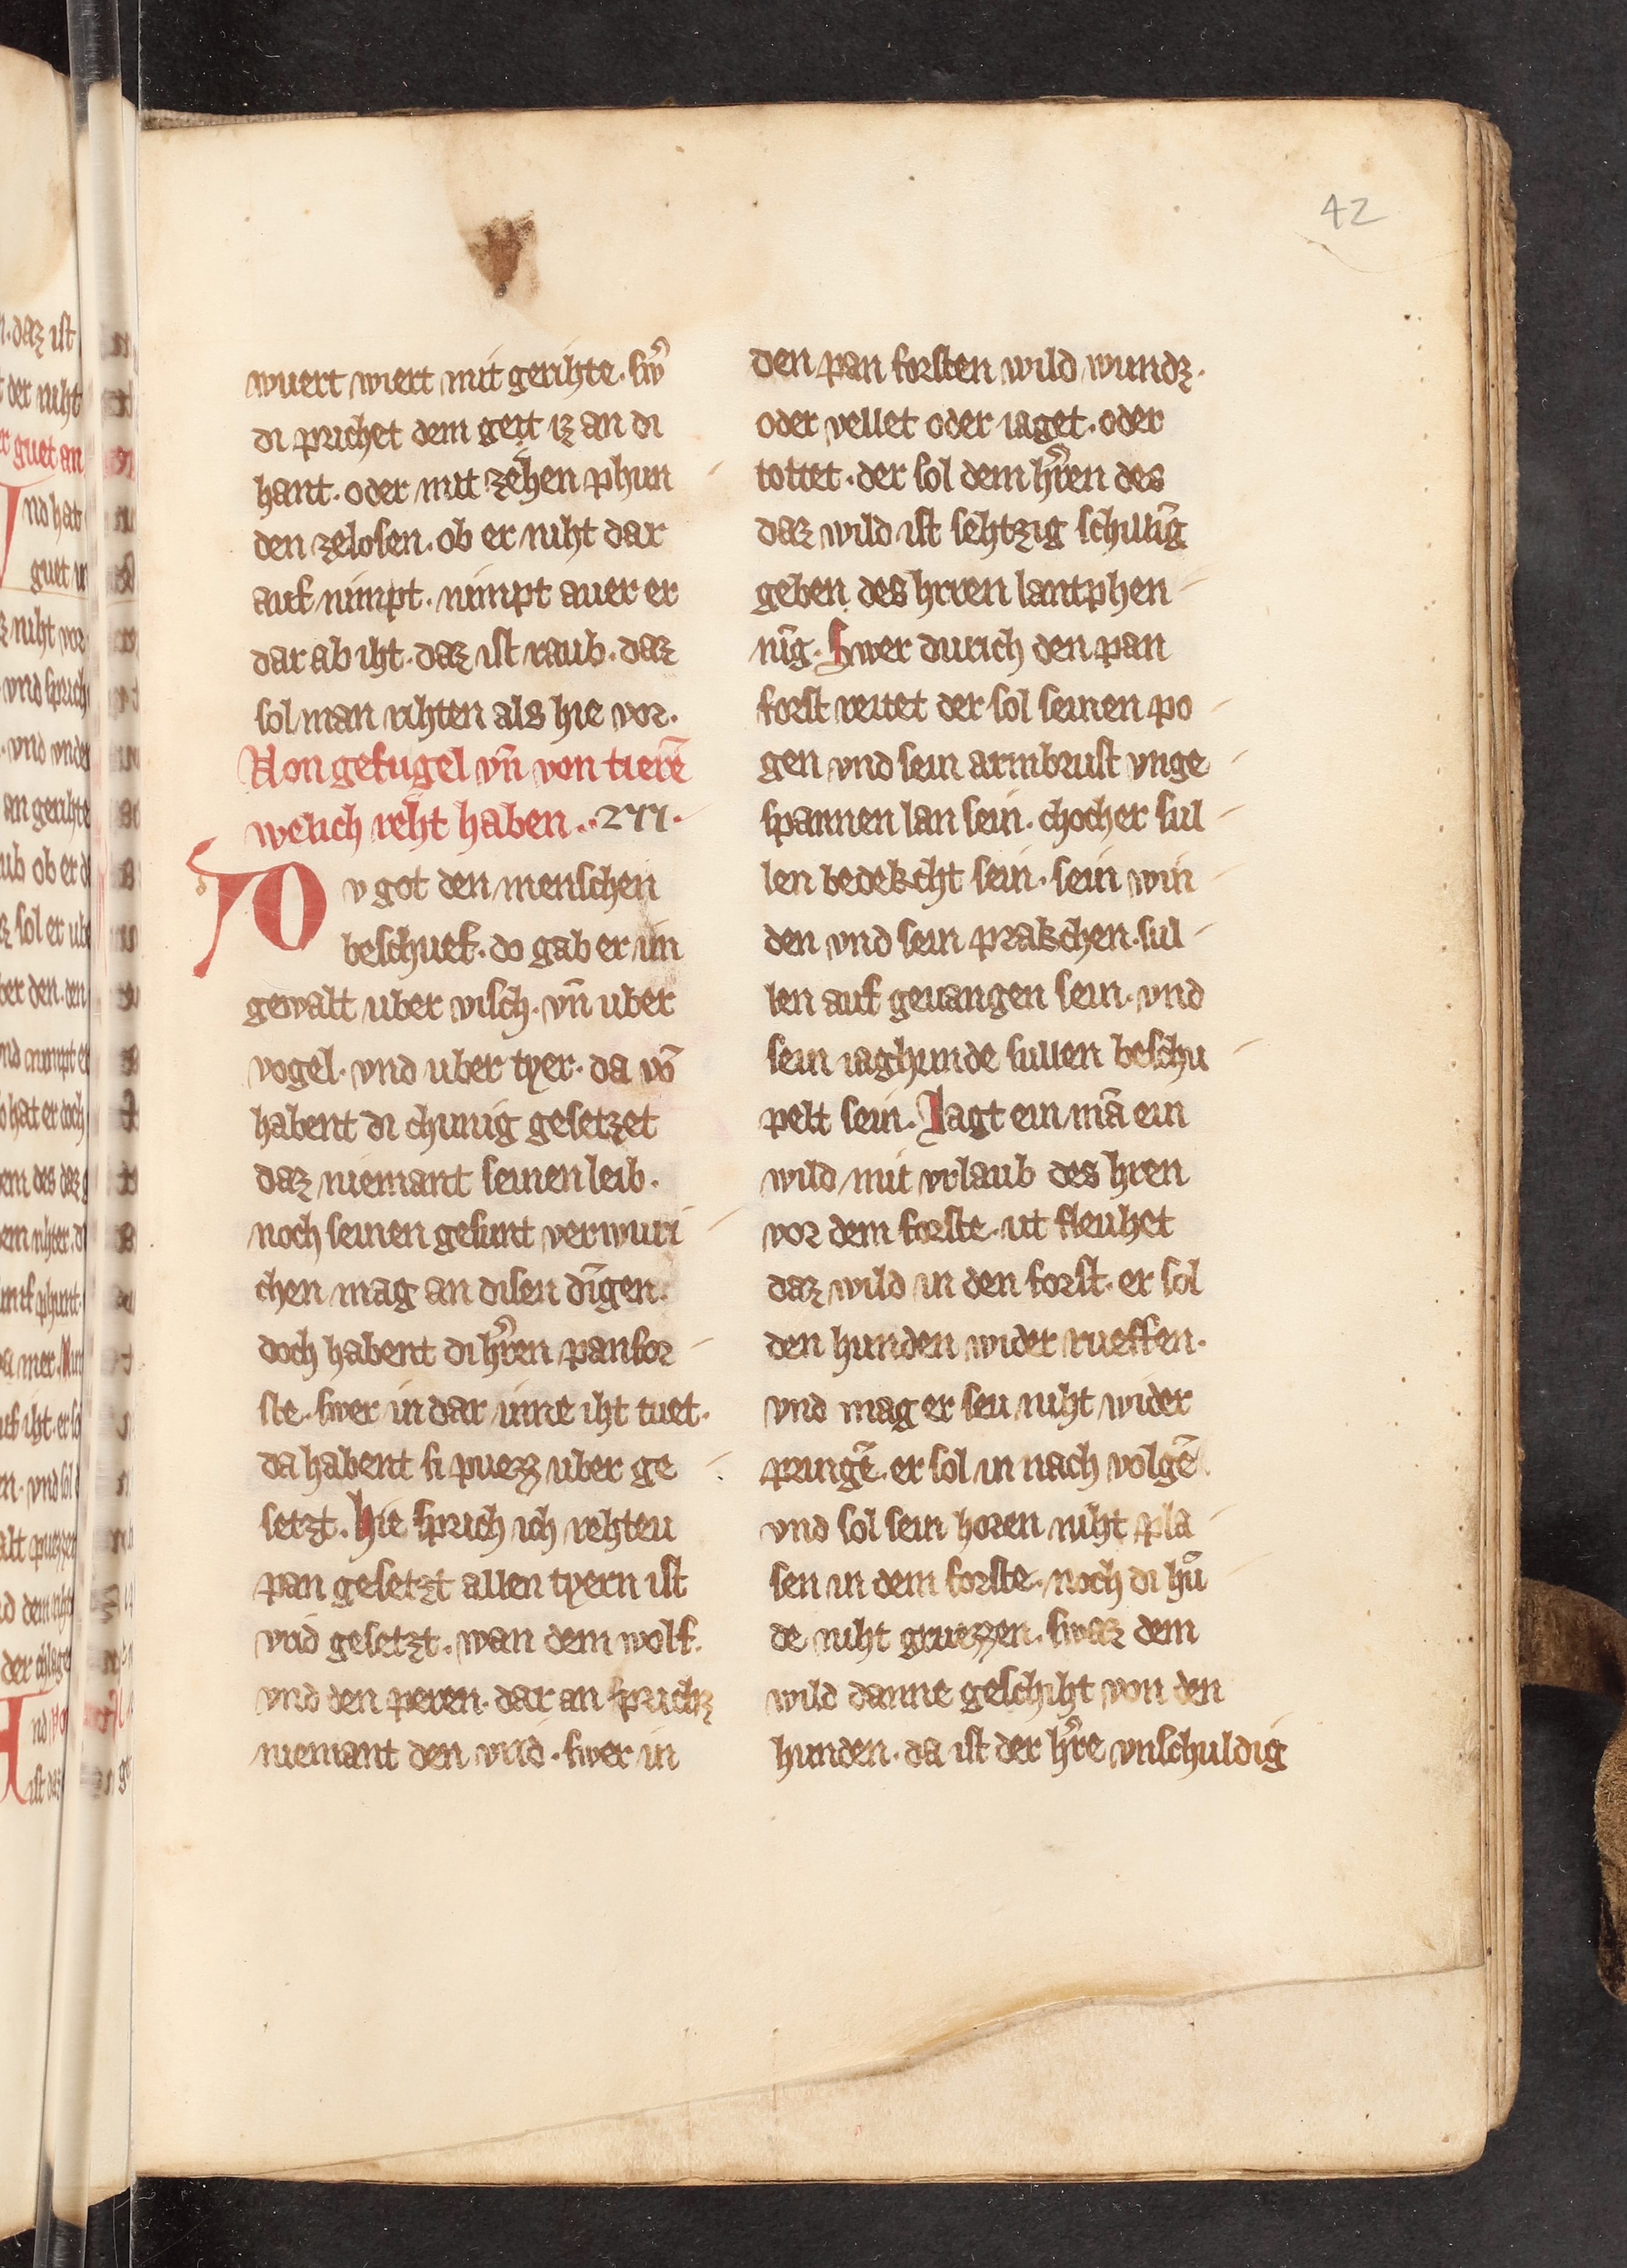 42
wuert wiert mit gerihte. sw͛
di prichet dem get iz an di
hant. oder mit zehen phun
den zelosen. ob er niht dar
auf nimpt. nimpt auer er
dar ab iht. daz ist raub. daz
sol man rihten als hie vor.
Von gefugel vn̄ von tierē
welich reht haben.
Do v got den menschen
beschuef. do gab er im
gewalt uber visch. vn̄ uber
vogel. vnd uber tyer. da vō
habent di chunig gesetzet
daz niemant seinen leib.
noch seinen gesunt verwuri
chen mag an disen dīgen.
doch habent di h͛ren panfor
ste. swer in dar inne iht tuet.
da habent si puezz uber ge
setzt. Hie sprich ich rehteu
pan gesetzt allen tyern ist
vrid gesetzt. wan dem wolf.
vnd den peren. dar an prichz
niemant den vrid. swer in
den pan forsten wild wundz.
oder vellet oder iaget. oder
tottet. der sol dem h͛ren des
daz wild ist sehtzig schillīg
geben des hrren lantphen
nīg. Swer durich den pan
forst reitet der sol seinen po
gen vnd sein armbrust vnge
spannen lan sein. chocher sul
len bedekcht sein. sein win
den vnd sein prakchen. sul
len auf geuangen sein. vnd
sein iaghunde sullen beschu
pelt sein. Jagt ein mā ein
wild mit vrlaub des hren
vor dem forste. ut fleuhet
daz wild in den forst. er sol
den hunden wider rueffen.
vnd mag er seu niht wider
pringē. er sol in nach volgē
vnd sol sein horen niht pla
sen in dem forste. noch di hū
de niht gruezzen. swaz dem
wild danne geschiht von den
hunden. da ist der h͛re vnschuldig